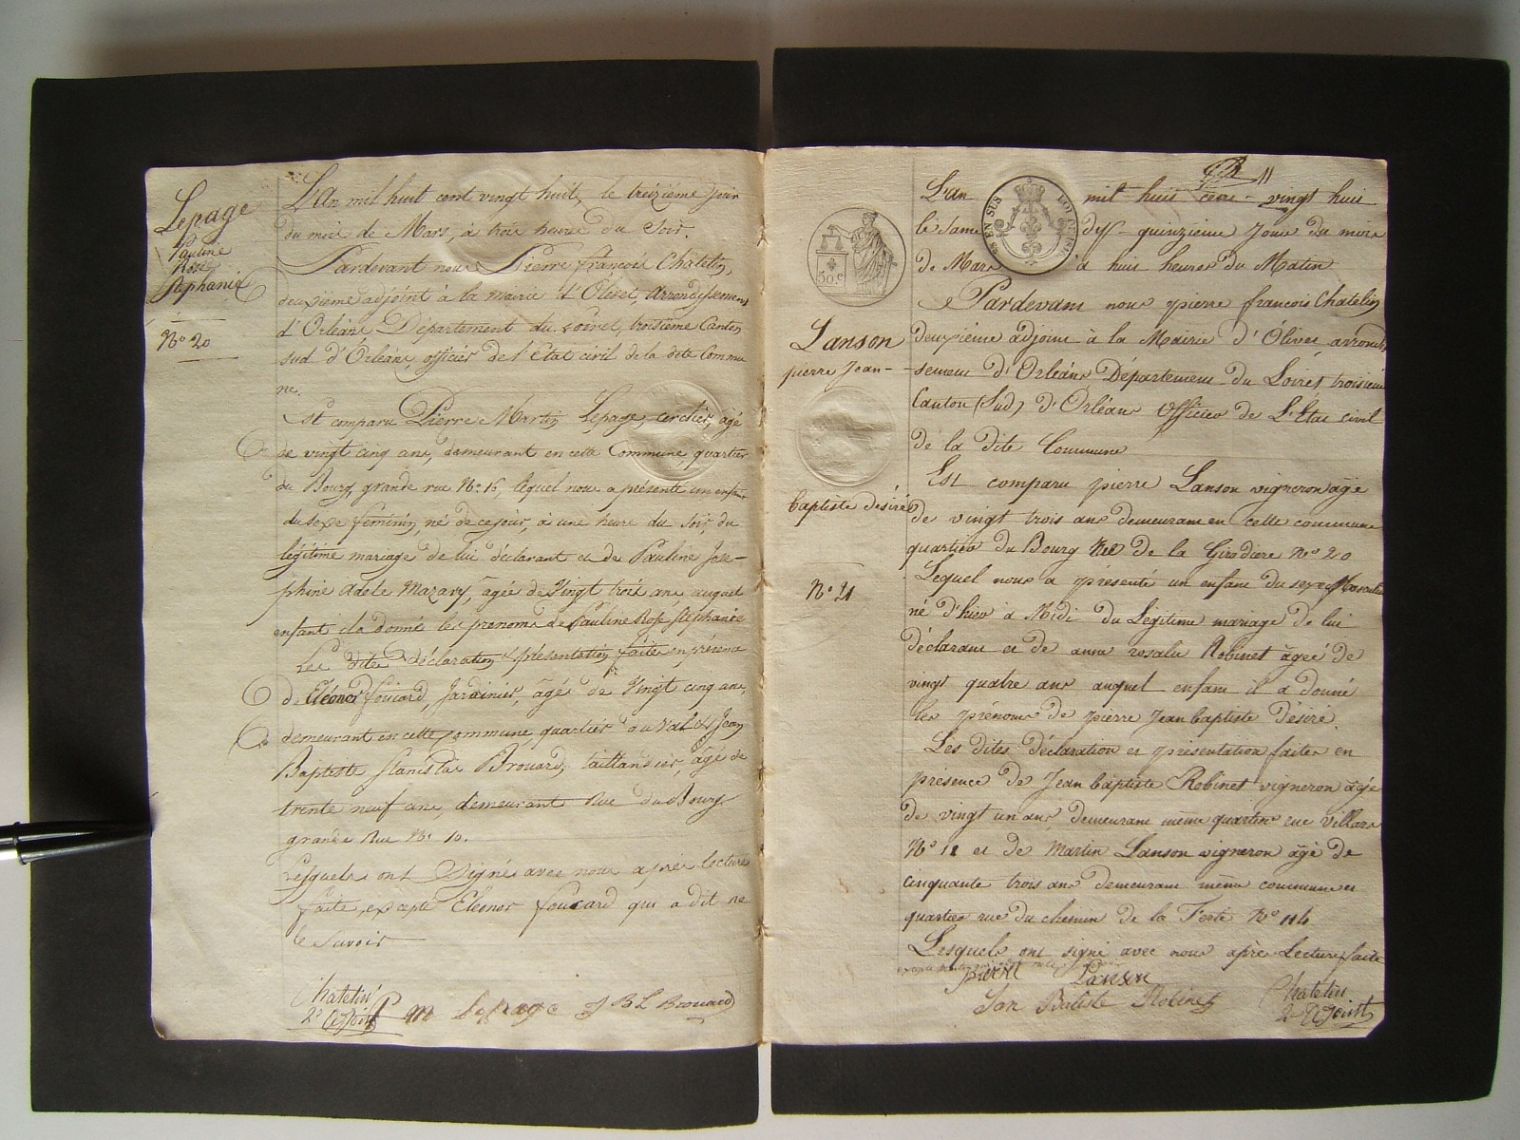 Lepage
Pauline
Rose
Stephanie
No 20
L'An mil huit cent vingt huit, le treizième jour
du mois de Mars, à trois heures du Soir.
Pardevant nous Pierre françois Châtelin,
deuxième adjoint à la mairie d'Olivet, Arrondissement
d'Orléans Département du Loiret, troisième Canton
sud d'Orléans, officier de l'état civil de la dite Commu
ne.
Est comparu Pierre Martin Lepage, cerclier, agé
de vingt cinq ans, demeurant en cette Commune, quartier
du Bourg, grande rue No 15, lequel nous a présenté un enfant
du sexe féminin, né de ce jour, à une heure du Soir, du
légitime mariage de lui déclarant et de Pauline José-
phine Adele Mazary, agée de Vingt trois ans auquel
enfant il a donné les prenoms de Pauline Rose Stephanie
Les dites déclaration & présentation faites en présence
de Eléonor foucard, Jardinier, âgé de Vingt cinq ans,
demeurant en cette commune, quartier du Val & Jean
Baptiste Stanislas Brouard, taillandier, âgé de
trente neuf ans, demeurant Rue du Bourg
grande Rue No 10.
Lesquels ont Signé avec nous après lecture
faite, excepté Eléonor foucard qui a dit ne
le Savoir
Chatelin
2e adjoint P m Lepage J B L Brouard
11
L'an mil huit cent vingt huit
le Samedi quinzieme Jour du mois
de Mars à huit heures du Matin
50 c
Pardevant nous pierre francois Chatelin
Lanson
pierre Jean
baptiste desiré
No 21
deuxiéme adjoint à la Mairie d'Olivet arrondis
sement d'Orléans Département du Loiret troisieme
Canton (Sud) d'Orléans Officier de L'Etat civil
de la dite Commune
Est comparu pierre Lanson vigneron agé
de vingt trois ans demeurant en cette commune
quartier du Bourg Rue de la Girodiere No 20
Lequel nous a présenté un enfant du sexe Masculin
né d'hier à Midi du Légitime mariage de lui
déclarant et de anne rosalie Robinet âgeé de
vingt quatre ans auquel enfant il a donné
les prénoms de pierre Jean baptiste désiré.
Les dites déclaration et présentation faites en
présence de Jean baptiste Robinet vigneron agé
de vingt un ans, demeurant meme quartier rue Villars
No 11 et de Martin Lanson vigneron agé de
cinquante trois ans demeurant même commune et
quartier rue du chemin de la Ferté No 114
Lesquels ont signé avec nous après Lecture faite
pierre Lanson
Jan Batiste Robinet
Chatelin
2e adjoint